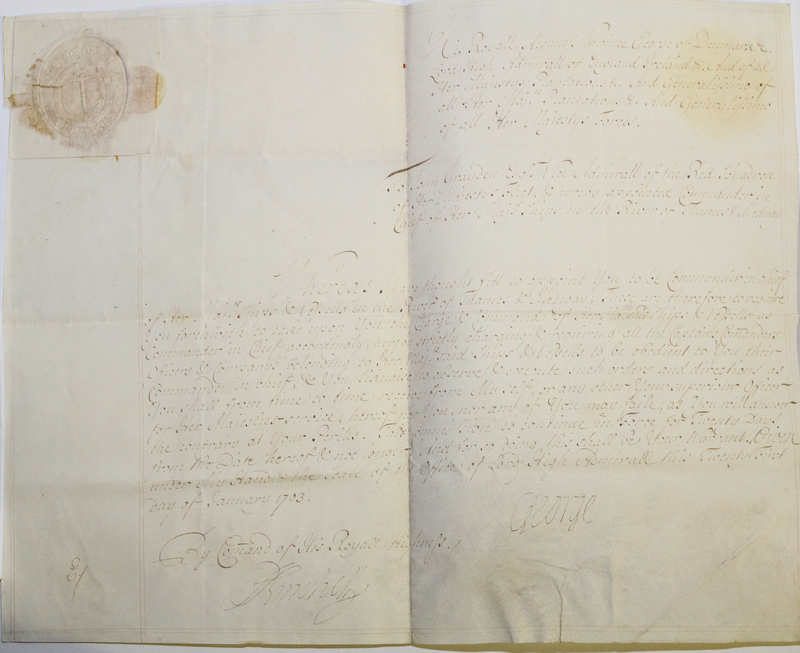 His Royall Highness Prince George of Denmark &c.
Lord High Admirall of England Ireland &c. And of all
Her Majestys Plantations &c. And Generalissimo of
all Her Majts Plantations &c. And Generalissimo
of all Her Majestys Forces.
To John Graydon Esqr. Vice Admirall of the Red Squadron
of Her Majestys Fleet, & hereby appointed Commander in
Cheif of Her Majts Ships in the River of Thames & Medway
Whereas I have thought fitt to appoint You to be Commander in cheif
of Her Majts Shipps & Vessells in the River of Thames & Medway; These are therefore to require
You forthwith to take upon You the Charge & Command of Shipps & Vessells as
Commander in Cheif accordingly, hereby strictly charging & requiring all the Captains Comanders
Officers & Companys belonging to Her Majts said Shipps & Vessells to be obedient to You their
Commander in cheif, & You likewise to observe & execute such orders and directions as
You shall from time to time receive from My self, or any other Your superiour Officer
for Her Majesties service; hereof nor You, nor any of You may faile, as You will answer
the contrary at Your Perills. to continue in Force for Twenty Days
from the Date hereof & not And for so doing, this shall be Your Warrant, Given
under My Hand & the Seale of the Office of Lord High Admirall this Twenty
day of January 1703.
George
By Comand of His Royall Highness